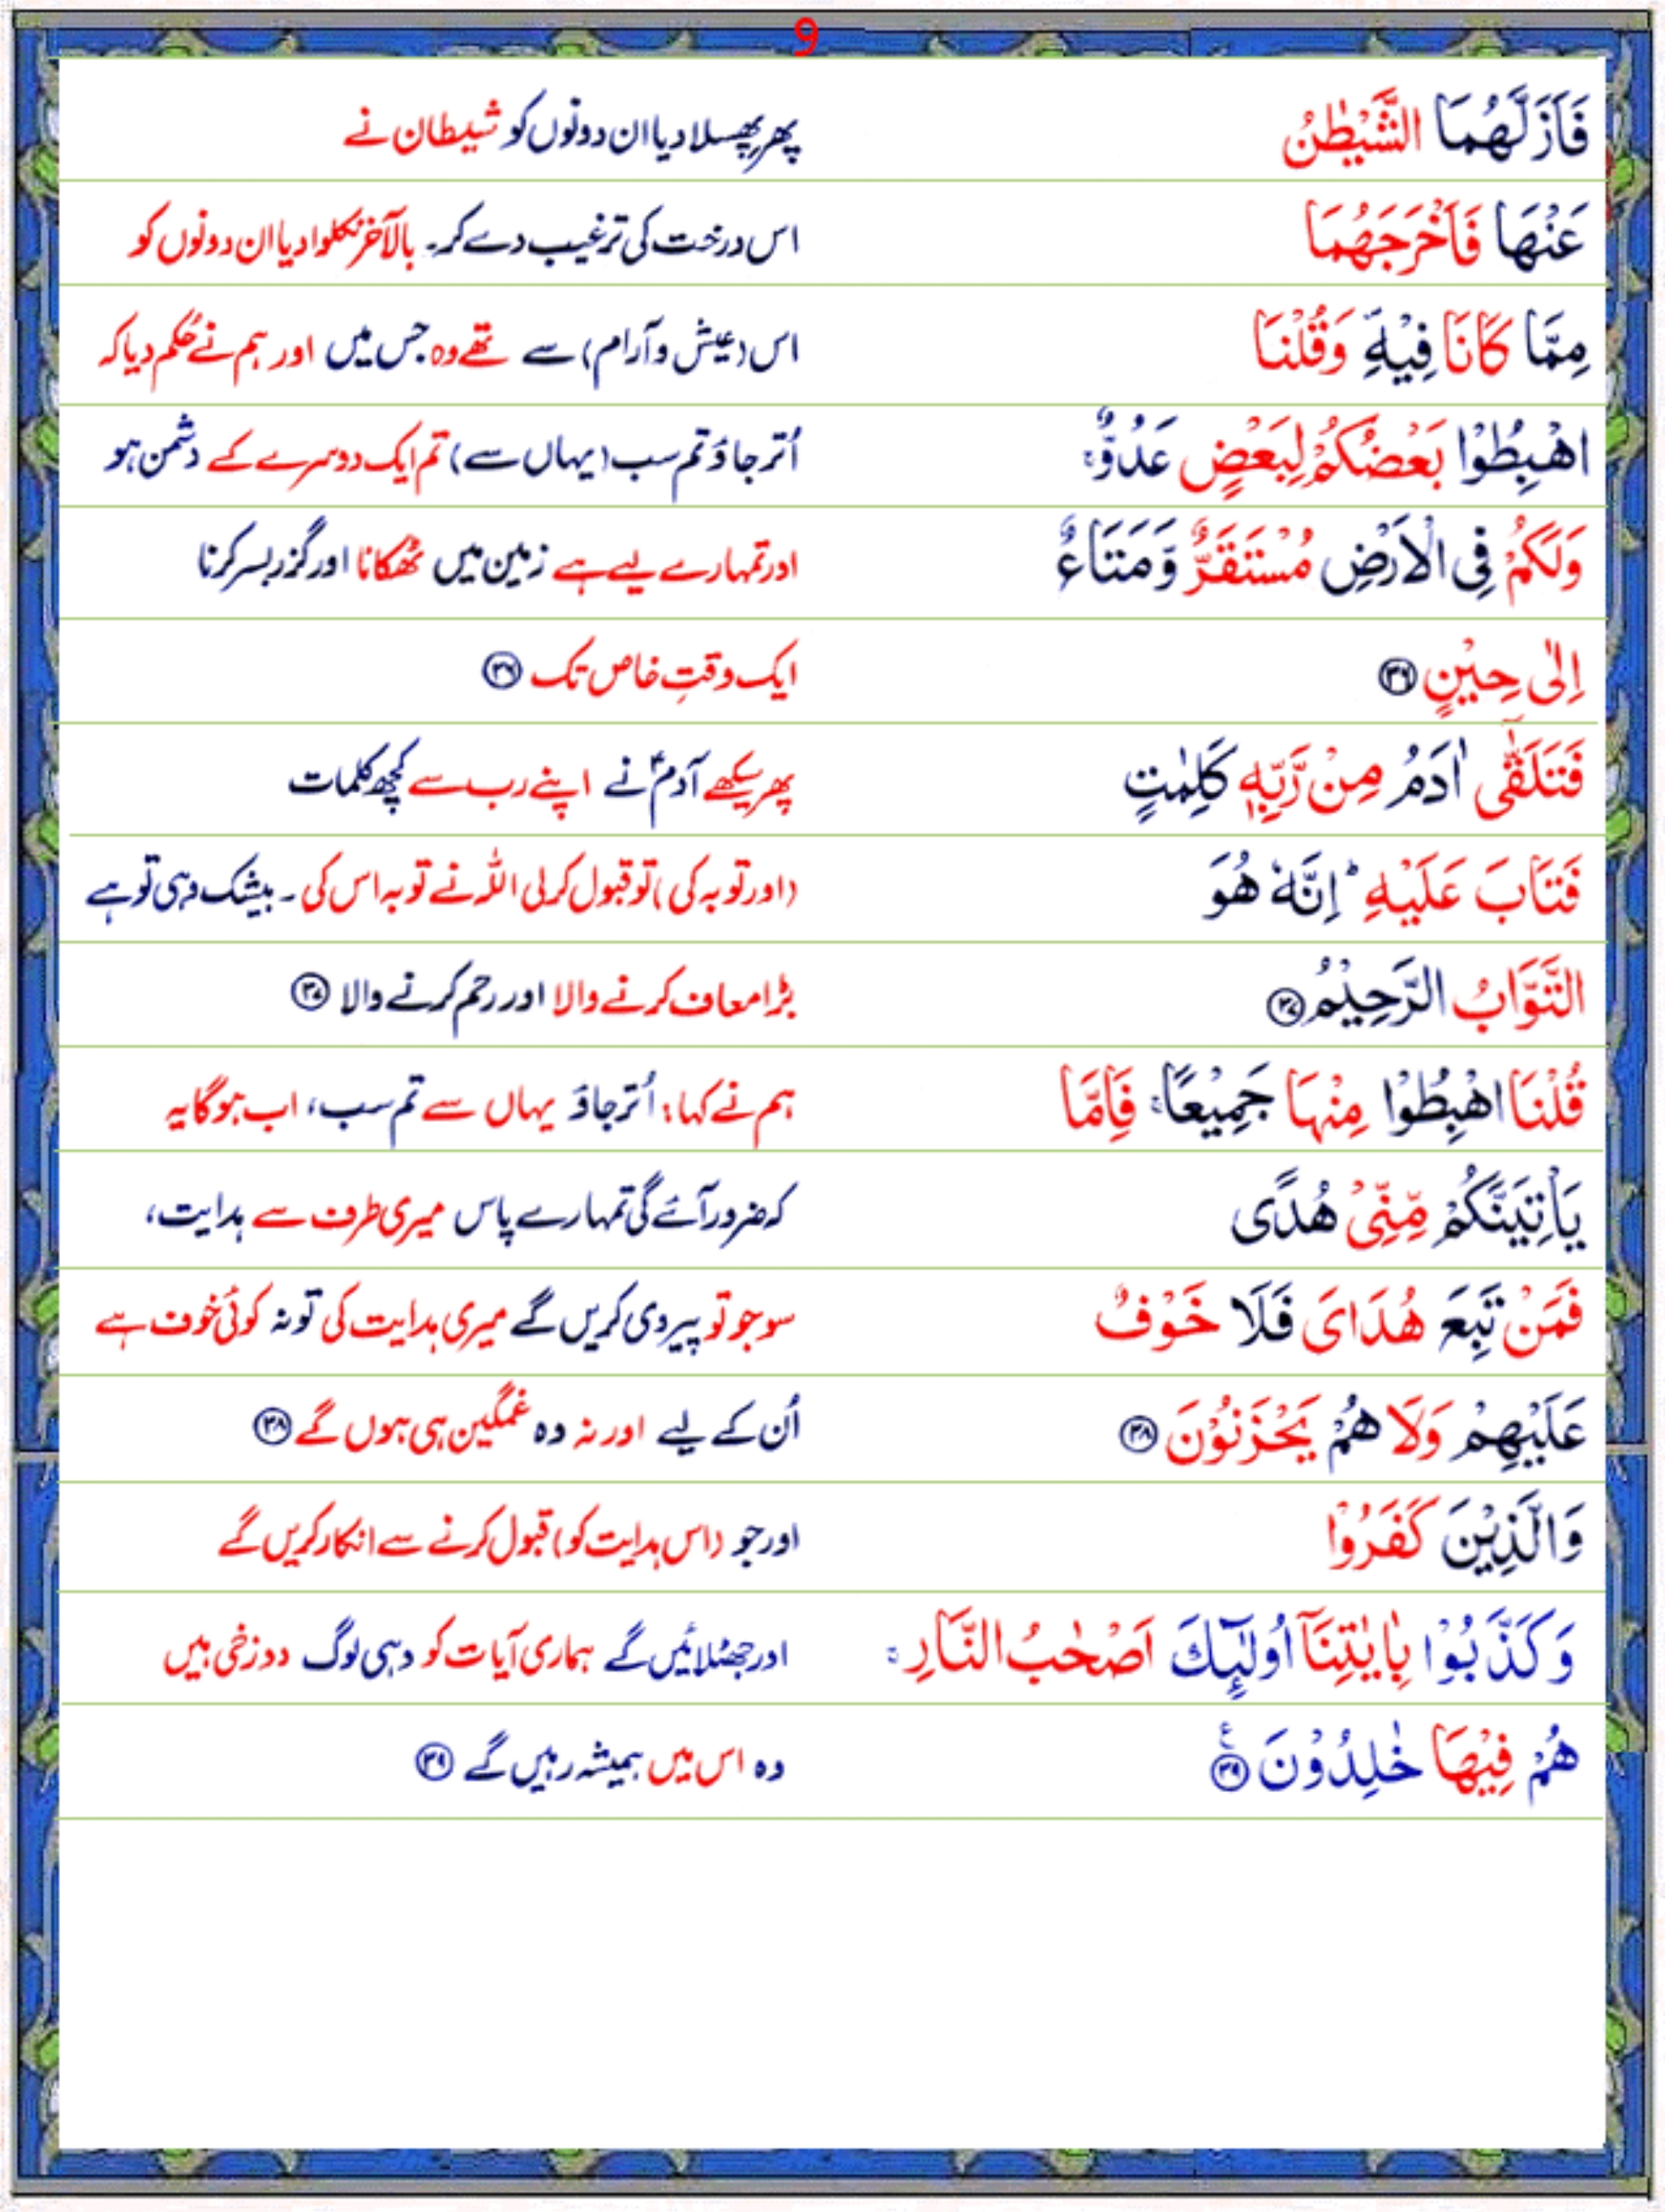 9
فَاَزَلَّهُمَا الشَّيْطٰنُ پھر پھسلا دیا ان دونوں کو شیطان نے
عَنْهَا فَاَخْرَجَهُمَا اس درخت کی ترغیب دے کر۔ بالآخر نکلوا دیا ان دونوں کو
مِمَّا كَانَا فِيْهِ۪ وَقُلْنَا اس (عیش و آرام) سے تھے وہ جس میں اور ہم نے حُکم دیا کہ
اهْبِطُوْا بَعْضُكُمْ لِبَعْضٍ عَدُوٌّ ۚ اُتر جاؤ تم سب (یہاں سے) تم ایک دوسرے کے دشمن ہو
وَلَكُمْ فِى الْاَرْضِ مُسْتَقَرٌّ وَّمَتَاعٌ اور تمہارے لیے ہے زمین میں ٹھکانا اور گزر بسر کرنا
اِلٰى حِيْنٍ ۳۶ ایک وقتِ خاص تک ۳۶
فَتَلَقّٰٓى اٰدَمُ مِنْ رَّبِّهٖ كَلِمٰتٍ پھر سیکھے آدمؑ نے اپنے رب سے کچھ کلمات
فَتَابَ عَلَيْهِ ؕ اِنَّهٗ هُوَ (اور توبہ کی) تو قبول کرلی اللہ نے توبہ اس کی۔ بیشک وہی تو ہے
التَّوَّابُ الرَّحِيْمُ ۳۷ بڑا معاف کرنے والا اور رحم کرنے والا ۳۷
قُلْنَا اهْبِطُوْا مِنْهَا جَمِيْعًا ۚ فَاِمَّا ہم نے کہا: اُتر جاؤ یہاں سے تم سب، اب ہوگا یہ
يَاْتِيَنَّكُمْ مِّنِّىْ هُدًى کہ ضرور آئے گی تمہارے پاس میری طرف سے ہدایت،
فَمَنْ تَبِعَ هُدَاىَ فَلَا خَوْفٌ سو جو تو پیروی کریں گے میری ہدایت کی تو نہ کوئی خوف ہے
عَلَيْهِمْ وَلَا هُمْ يَحْزَنُوْنَ ۳۸ اُن کے لیے اور نہ وہ غمگین ہی ہوں گے ۳۸
وَالَّذِيْنَ كَفَرُوْا اور جو (اس ہدایت کو) قبول کرنے سے انکار کریں گے
وَكَذَّبُوْا بِاٰيٰتِنَآ اُولٰٓئِكَ اَصْحٰبُ النَّارِ ۚ اور جھٹلائیں گے ہماری آیات کو وہی لوگ دوزخی ہیں
هُمْ فِيْهَا خٰلِدُوْنَ ۳۹ ع وہ اس میں ہمیشہ رہیں گے ۳۹